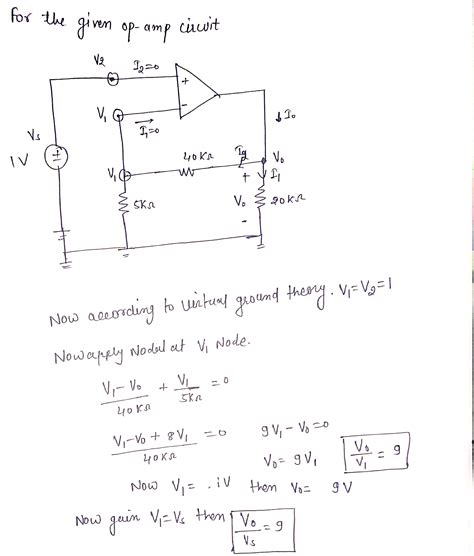 For the given op-amp circuit
V2
I2=0
+
-
V1
I1=0
↓I0
Vs
1V
V1
40KΩ
Ig
V0
+
I1
5KΩ
V0
20KΩ
-
Now according to virtual ground theory. V1=V2=1
Now apply Nodal at V1 Node.
V1-V0/40KΩ + V1/5KΩ = 0
V1-V0+8V1/40KΩ = 0 9V1-V0=0
V0= 9V1 V0/V1 = 9
Now V1= .iV then V0= 9V
Now gain V1=Vs then V0/Vs = 9